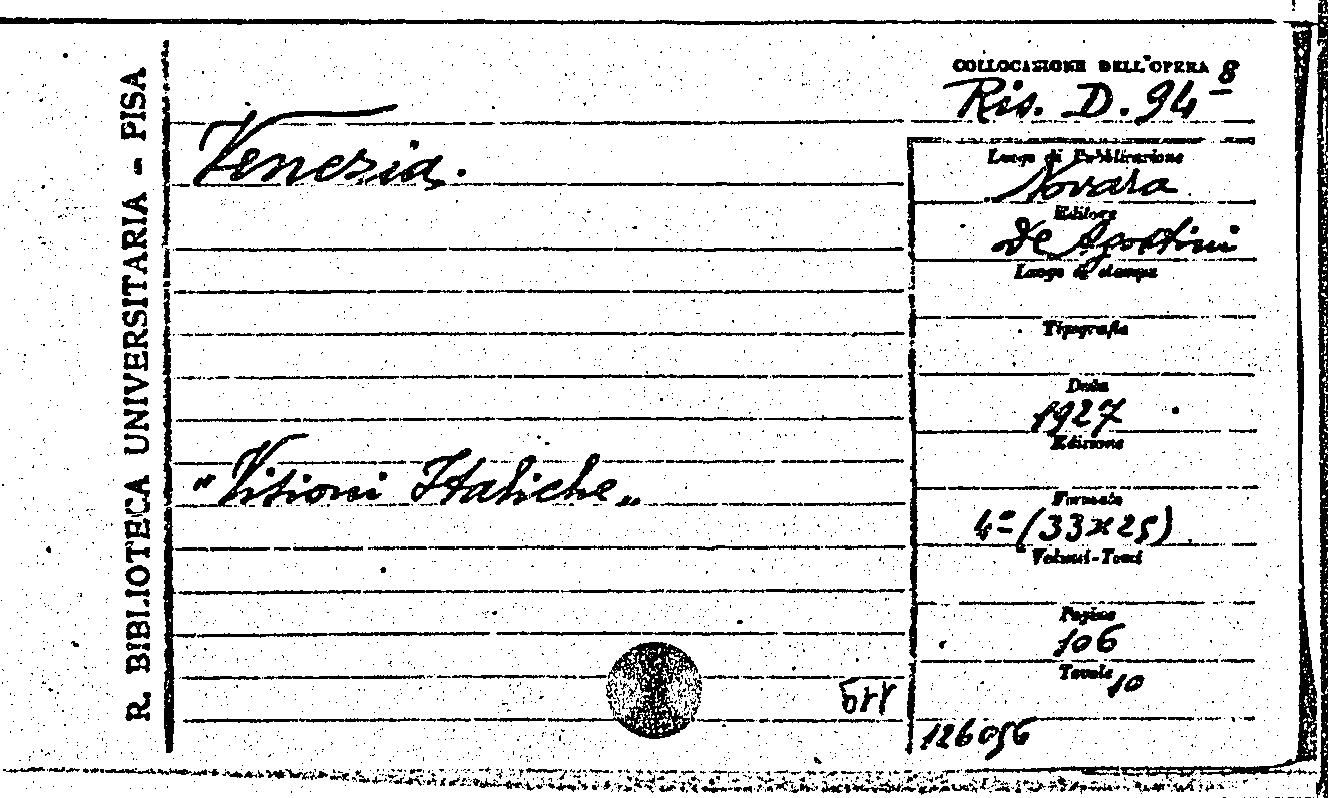 R. BIBLIOTECA UNIVERSITARIA - PISA
COLLOCAZIONE DELL'OPERA
Ris. D. 94 8
Venezia.
"Visioni Italiche"
Luogo di Pubblicazione
Novara
Editore
De Agostini
Luogo di stampa
Tipografia
Data
1927
Edizione
Formato
4º (33x25)
Volumi-Tomi
Pagine
106
Tavole
10
126056